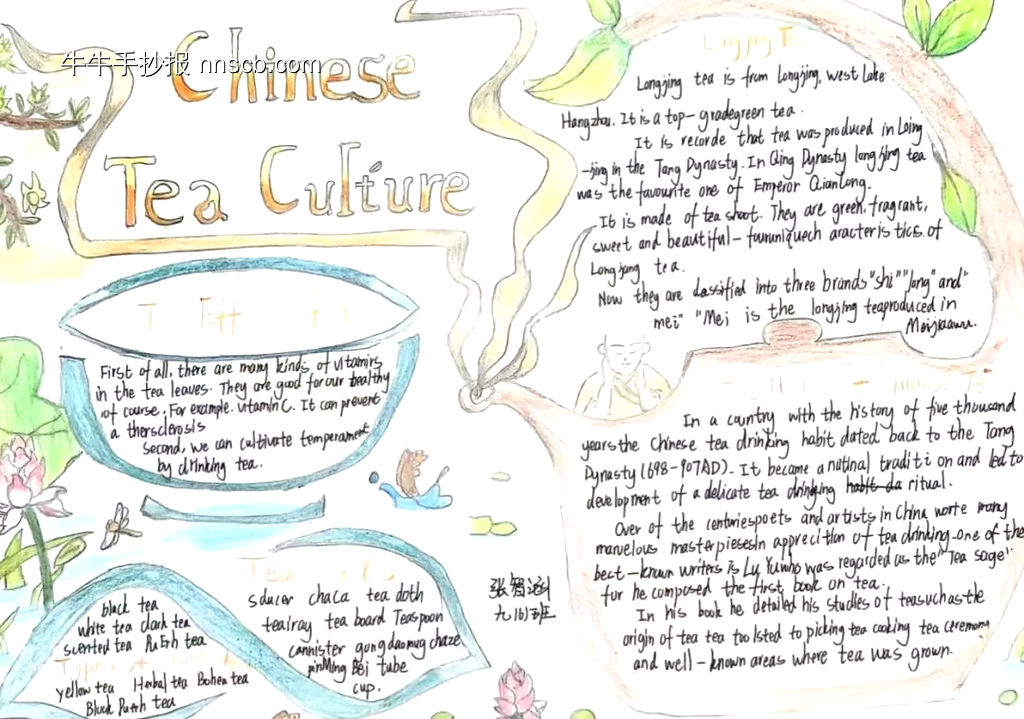 牛牛手抄报 nnscb.com
Chinese
Tea Culture
First of all, there are many kinds of vitamins
in the tea leaves. They are good for our healthy
of course. For example. vitamin C. It can prevent
a thersclerosis
second, we can cultivate temperament
by drinking tea.
black tea
white tea dark tea
scented tea PuErh tea
yellow tea Herbal tea Bohea tea
Black Puerh tea
Tea
saucer chaca tea doth
tealray tea board Teaspoon
cannister gongdaomug chaze
pinMing Bei tube
cup.
九(10)班
Longjing tea is from Longjing, west Lake
Hangzhou. It is a top-gradegreen tea.
It is recorde that tea was produced in Loing
-jing in the Tang Dynasty. In Qing Dynasty longjing tea
was the favourite one of Emperor QianLong.
It is made of tea shoot. They are green, fragrant,
sweet and beautiful-fouruniquech aracteris tics of
Longjong tea.
Now they are classified into three brands "shi" "long" and"
mei" "Mei is the longjing teaproduced in
In a country with the history of five thousand
years the Chinese tea drinking habit dated back to the Tang
Dynasty (698-907AD). It became a natinal traditi on and led to
development of a delicate tea drinking ritual.
Over of the centuriespoets and artists in China worte many
marvelous masterpiesesIn apprecitlon of tea drinking-one of the
bect-known writers is Lu Yuwho was regarded as the "Tea sage"
fur he composed the first book on tea.
In his book he detailed his studies of teasuchasthe
origin of tea tea toolsted to picking tea cooking tea ceremony
and well-known areas where tea was grown.